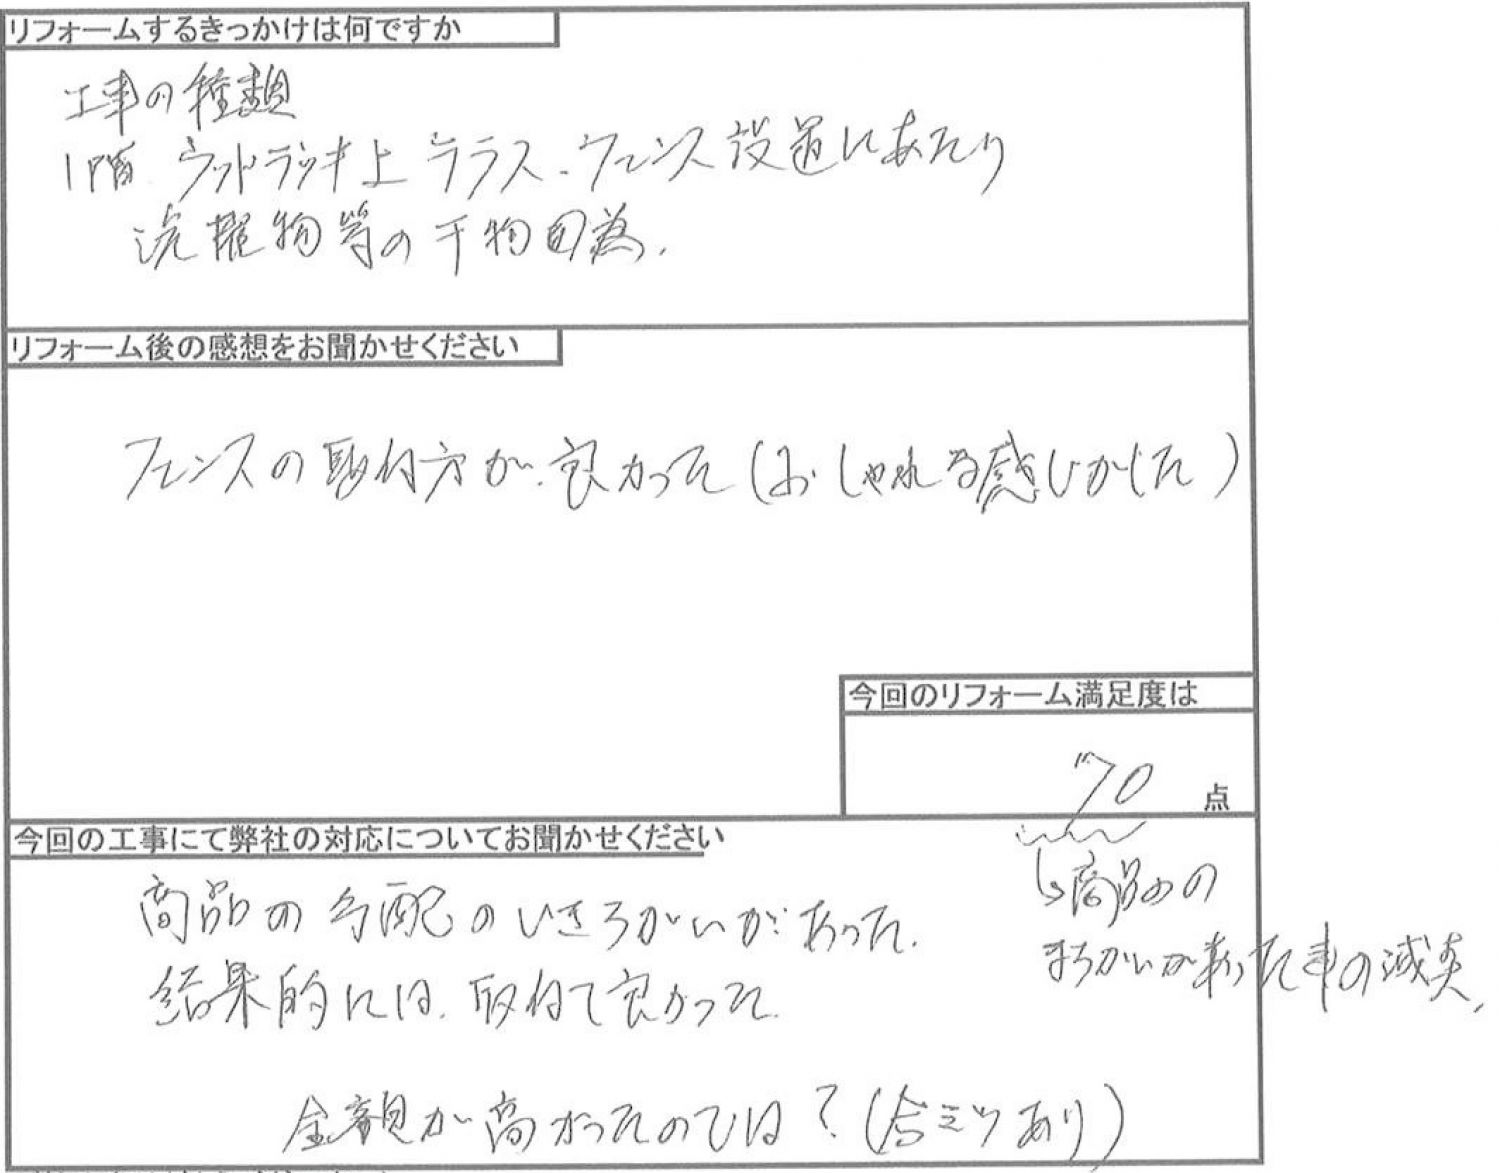 リフォームするきっかけは何ですか
工事の種類
1階 ウットデッキ上 テラス、フェンス設置にあたり
洗濯物等の干物目為、
リフォーム後の感想をお聞かせください
フェンスの取付方が良かった(おしゃれな感じがした)
今回のリフォーム満足度は
70 点
今回の工事にて弊社の対応についてお聞かせください
商品の手配のいきちがいがあった。
結果的には、取付て良かった
金額が高かったのでは?(合ミツあり)
↳商品の
まちがいがあった事の減点、